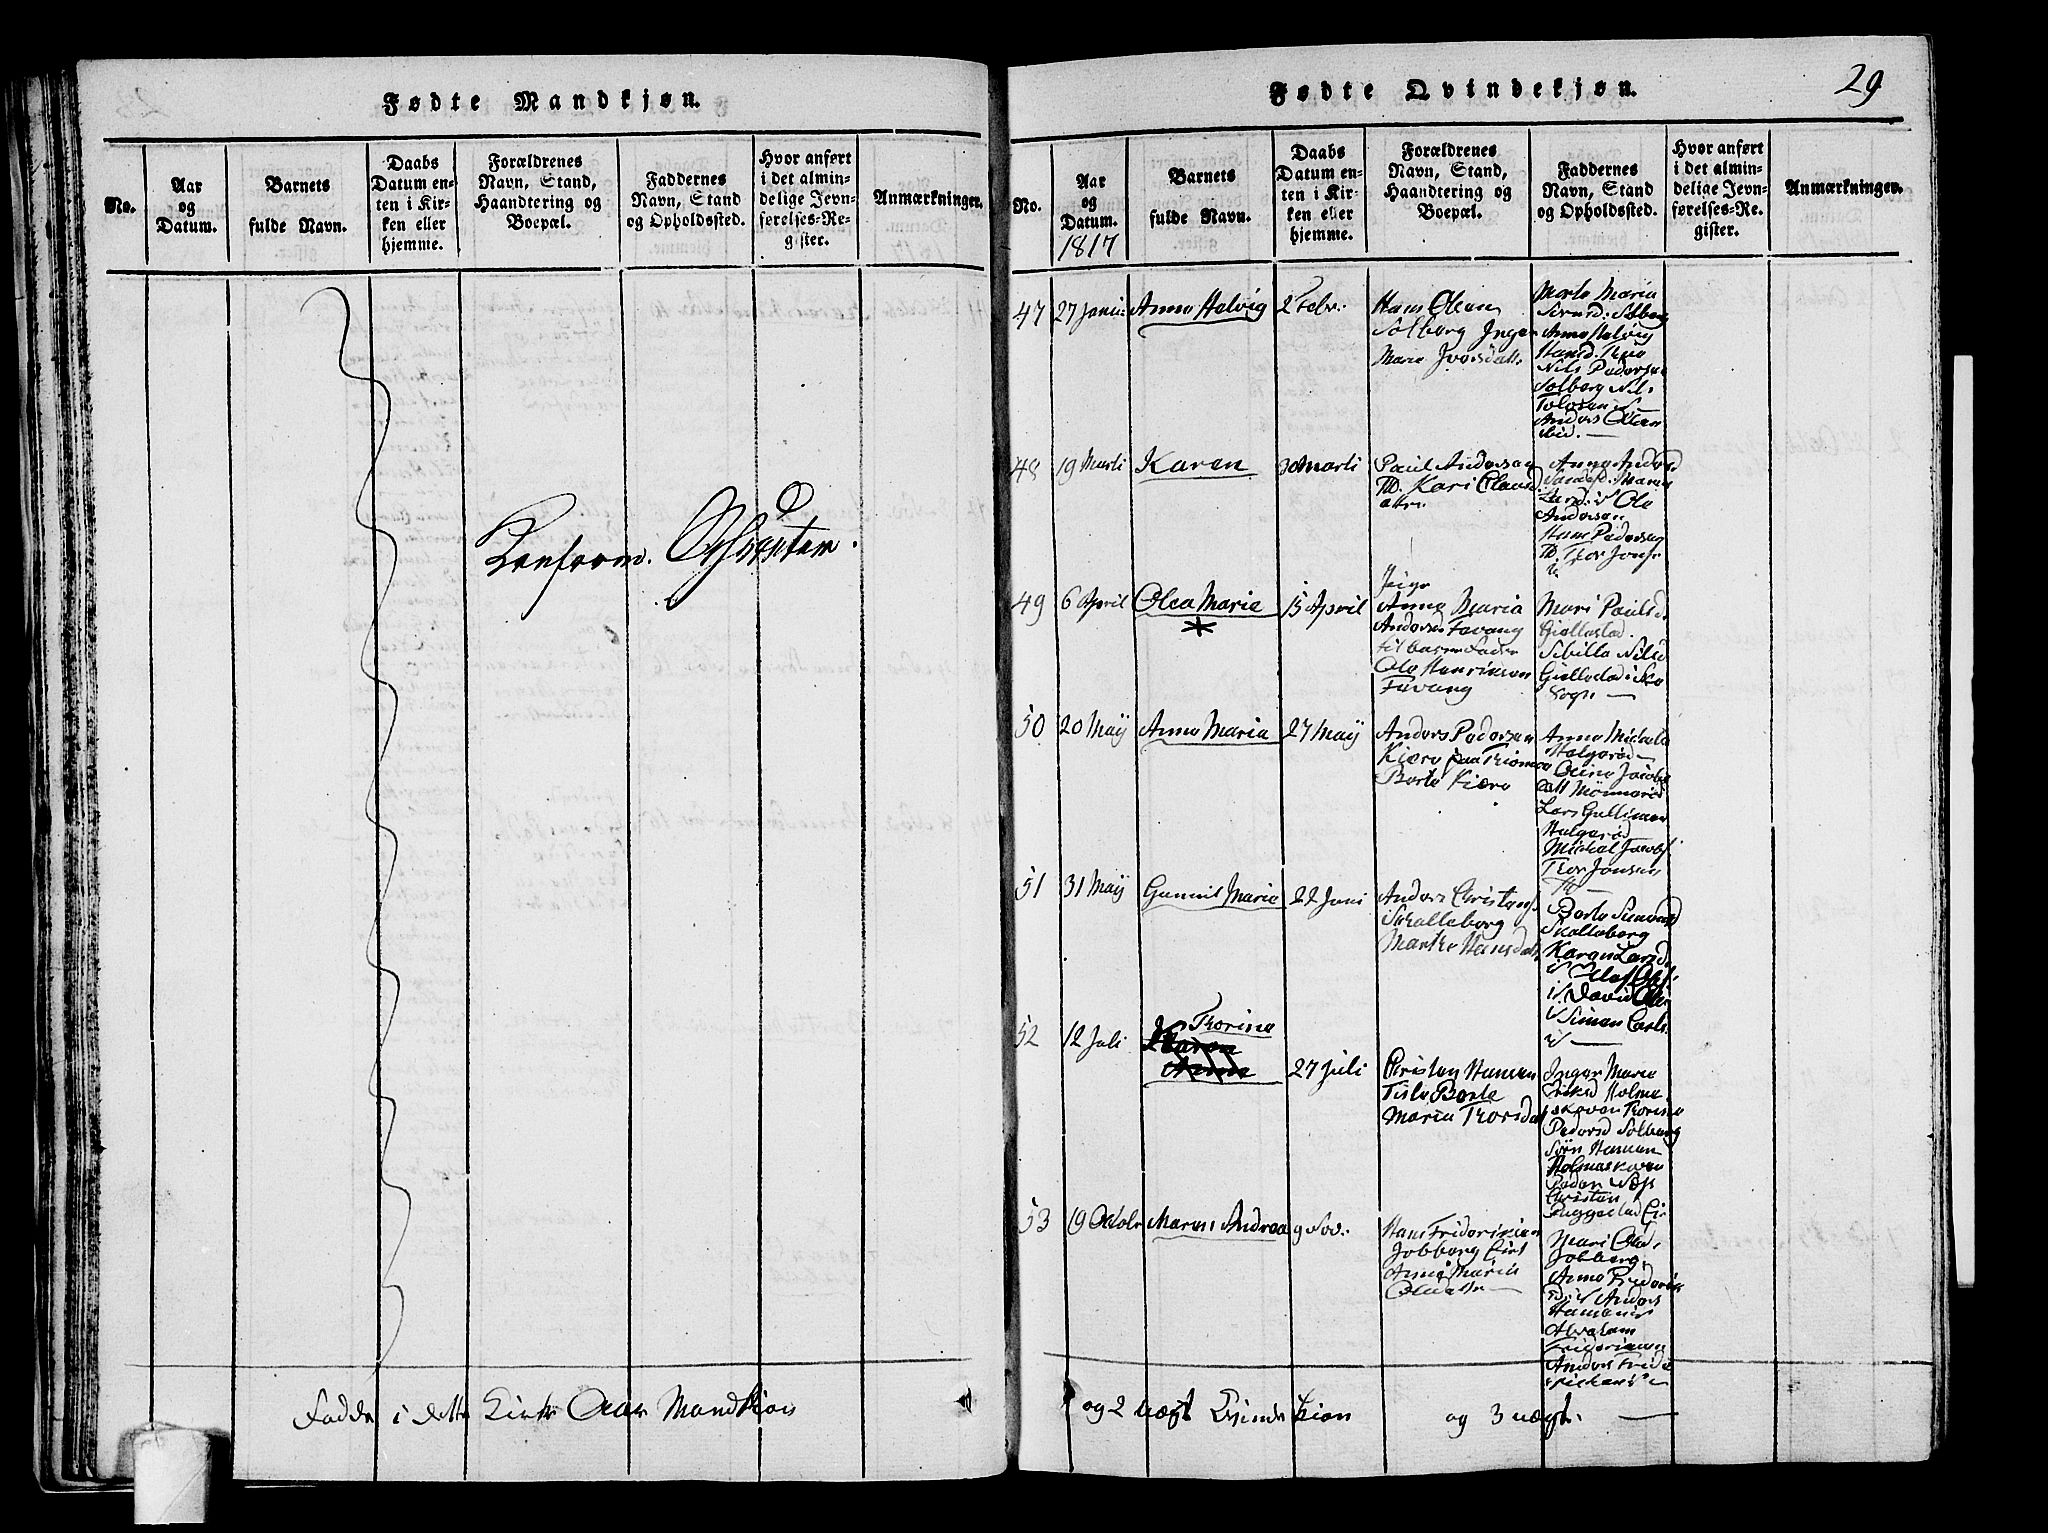 Fødte Mandkjøn.
No.
Aar
og
Datum.
Barnets
fulde Navn.
Daabs
Datum en-
ten i Kir-
ken eller
hjemme.
Forældrenes
Navn, Stand,
Haandtering og
Boepæl.
Faddernes
Navn, Stand
og Opholdssted.
Hvor anført
i det almin-
delige Jevn-
førelses-Re-
gister.
Anmærkninger.
Fødte Qvindekjøn.
29
No.
Aar
og
Datum.
1817
Barnets
fulde Navn.
Daabs
Datum en-
ten i Kir-
ken eller
hjemme.
Forældrenes
Navn, Stand,
Haandtering og
Boepæl.
Faddernes
Navn, Stand
og Opholdssted.
Hvor anført
i det almin-
delige Jevn-
førelses-Re-
gister.
Anmærkninger.
47
27 Janu:
Anne Helvig
2 Febr.
Hans Olsen
Solberg Inger
Marie Iversdatt.
Marte Maria
Solberg
Anne Helvig
Hansd.
Nils Pedersen
Solberg Nils
Anders Olsen
ibid.
48
19 Marti
Karen
30 Marti
Paul Andersen
Kari Olausd
atter
Anne Andersd
Maren
Larsd. Ole
Andersen
Hans Pedersen
Thor
49
6 April
Olea Marie
15 April
Pige
Anne Maria
Andersd Favang
til barnefader
Ole Henriksen
Favang
Mari Paulsd.
Giellestad.
Sibilla Nilsd
Giellestad i
Sogn
50
20 Maÿ
Anne Maria
27 Maÿ
Anders Pedersen
Kiære paa
Berte Kiære
Anne
Helgerød
Oline Jacobs
datt
Lars Gullimen
Helgerød
Michel Jacobs.
Thor Jansen
51
31 Maÿ
Gunnil Maria
22 Juni
Anders Christens.
Skalleberg
Marthe Hansdatt.
Berte
Skalleberg
Karen Larsd.
David
Simen Carls.
52
12 Juli
Thorine
Karen
Anne
27 Juli
Christen Hansen
Berte
Maria Thorsdatt
Inger Marie
Holme
skoven Thorine
Pedersd Solberg
Sørn Hansen
Holmeskoven
Peder Næss
Christen
53
19 Octobr
Maren Andrea
9 Nov.
Hans Friderichsen
Jobberg
Anne Maria
Olsdatter
Mari Olsd.
Jobberg,
Anne Frederik
Anders
Hansen
Abraham
Friderichsen
Anders Fride
richsen
Fødde i dette Kirke Aar Mandkiøn
og 2 uægt Qvinde kiøn
og 3 uægt.